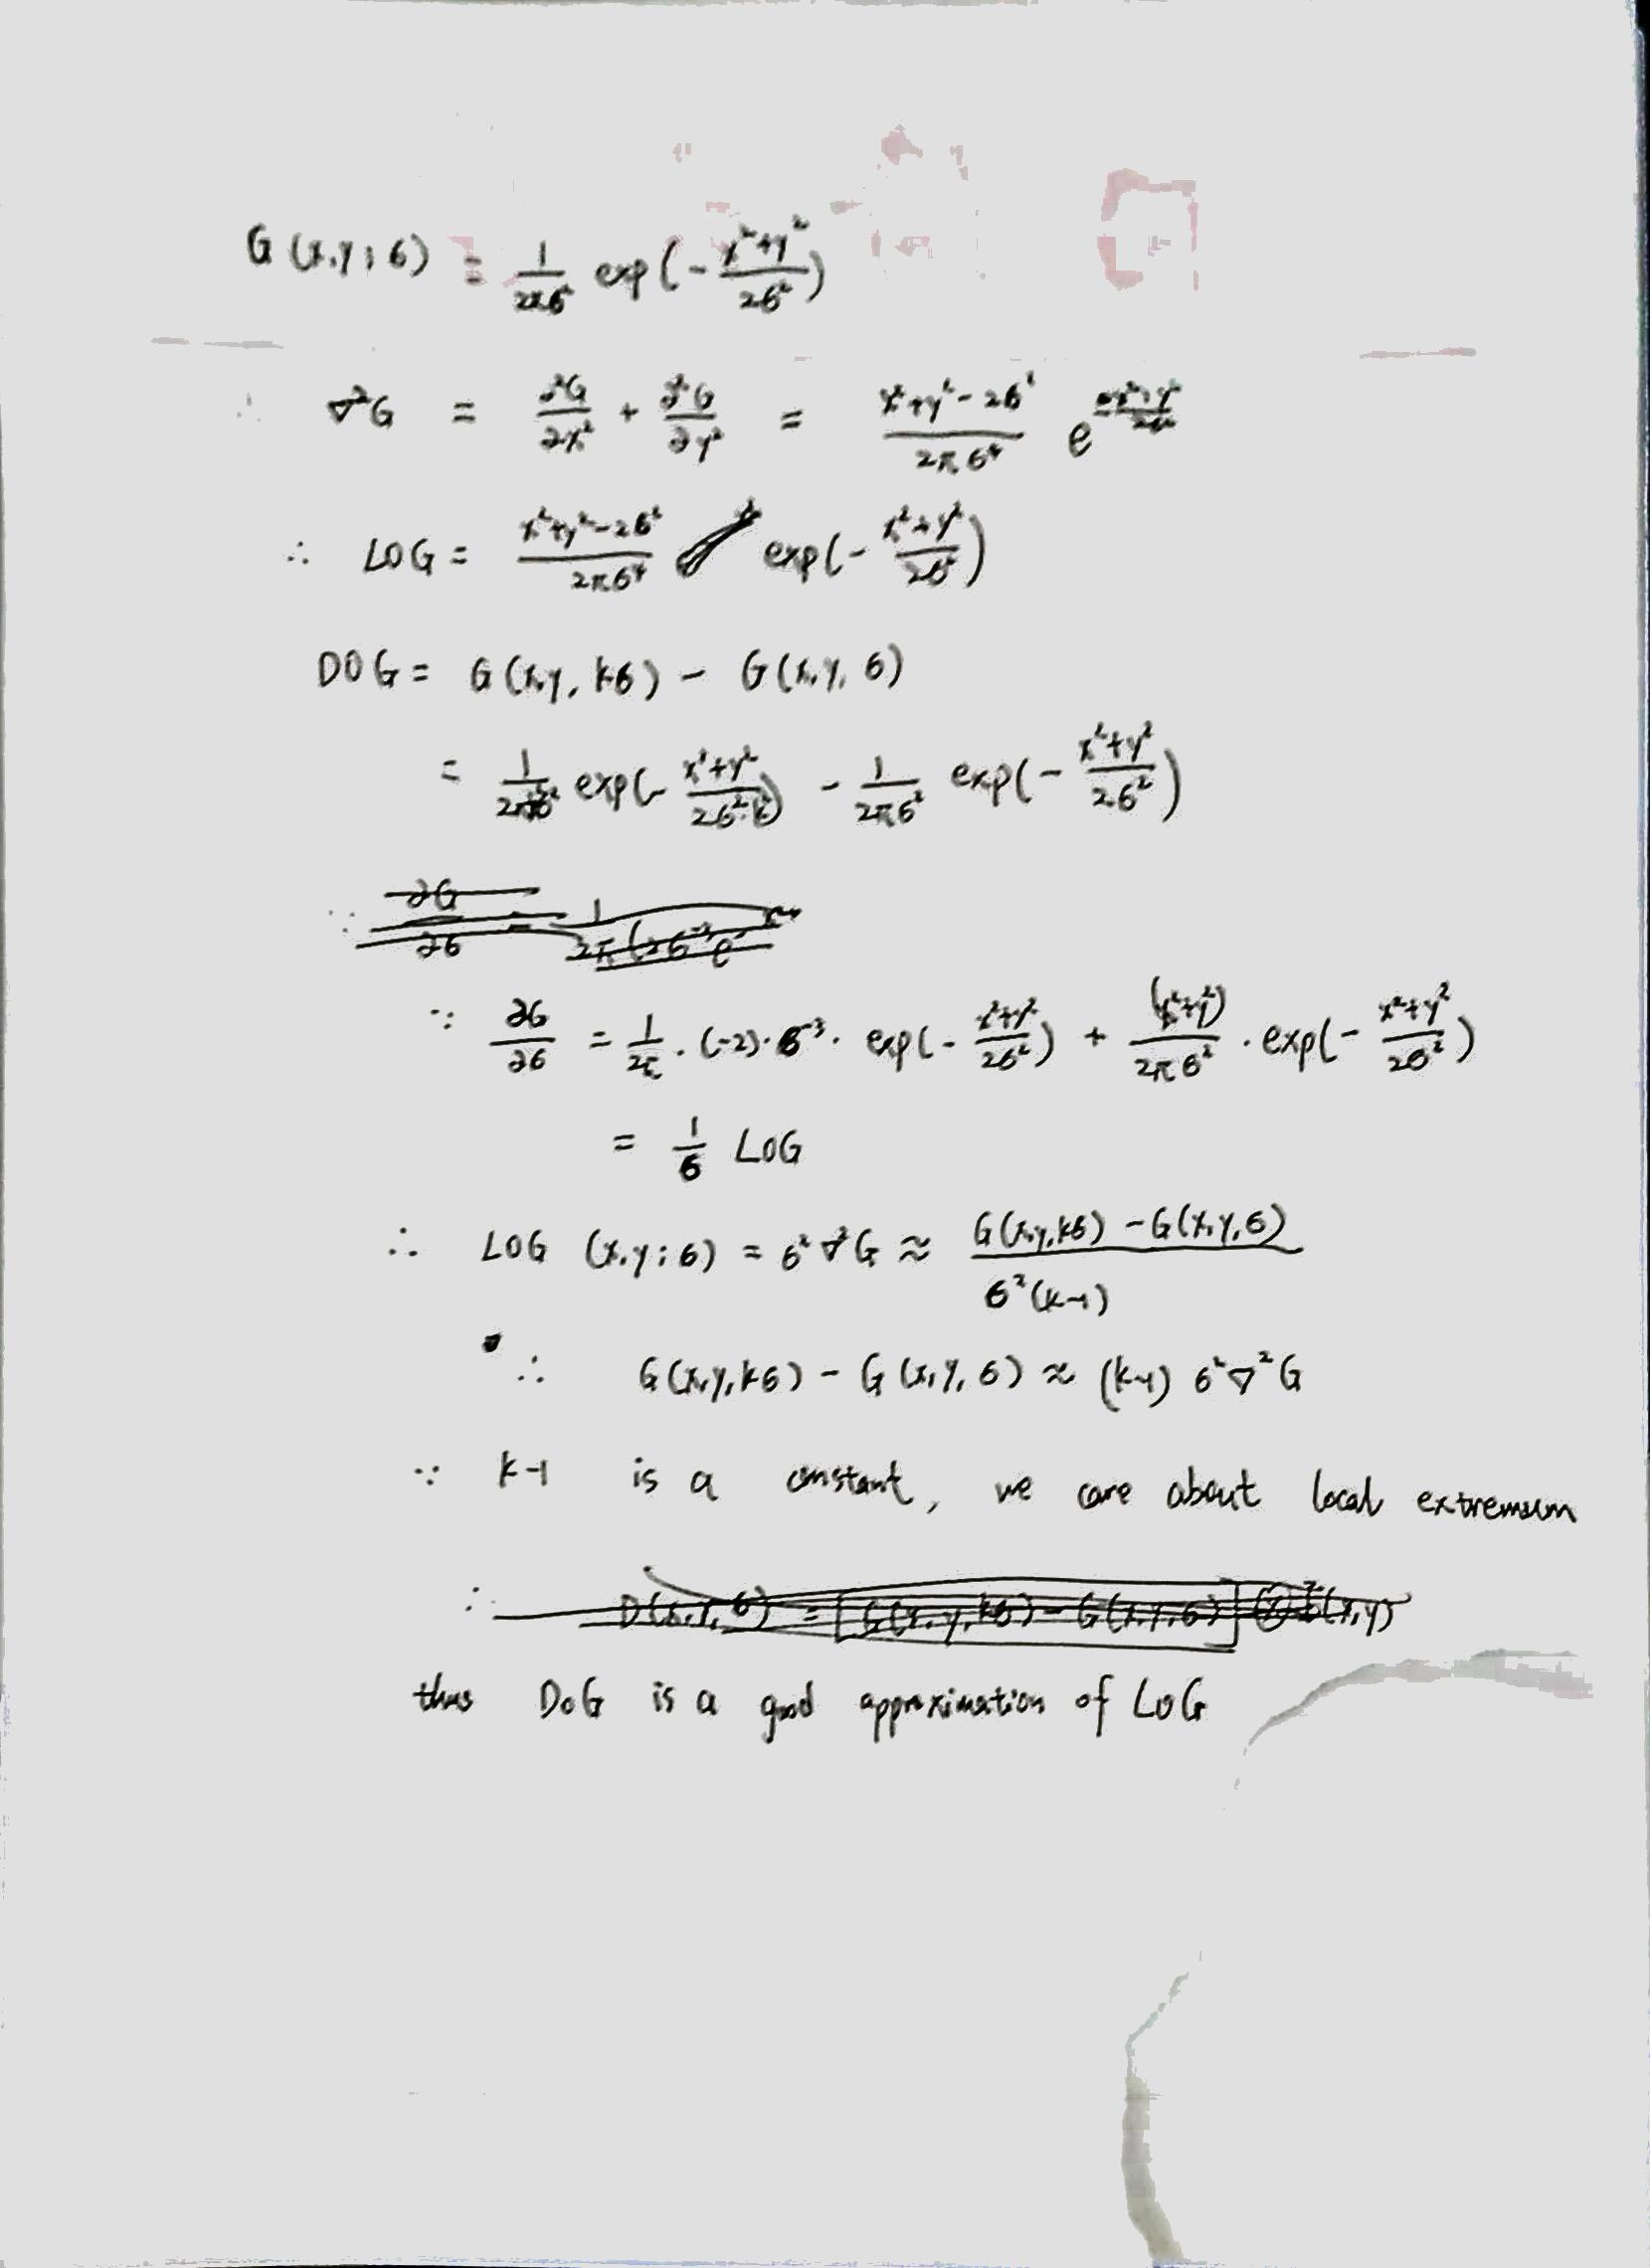 G(x,y;σ) = 1/(2πσ²) exp(-(x²+y²)/(2σ²))
∴ ∇²G = ∂²G/∂x² + ∂²G/∂y² = (x²+y²-2σ²)/(2πσ⁴) e
∴ LOG = (x²+y²-2σ²)/(2πσ⁴) exp(-(x²+y²)/(2σ²))
DOG = G(x,y,kσ) - G(x,y,σ)
= exp(-(x²+y²)/(2σ²·k²)) - 1/(2πσ²) exp(-(x²+y²)/(2σ²))
∵ ∂G/∂σ = 1/(2π) · (-2)·σ⁻³ · exp(-(x²+y²)/(2σ²)) + (x²+y²)/(2πσ²) · exp(-(x²+y²)/(2σ²))
= 1/σ LOG
∴ LOG (x,y;σ) = σ²∇²G ≈ (G(x,y,kσ) - G(x,y,σ))/(σ²(k-1))
∴ G(x,y,kσ) - G(x,y,σ) ≈ (k-1) σ²∇²G
∵ k-1 is a constant, we care about local extremum
∴ D(x,y,σ) = [G(x,y,kσ) - G(x,y,σ)] (x,y)
thus DoG is a good approximation of LoG